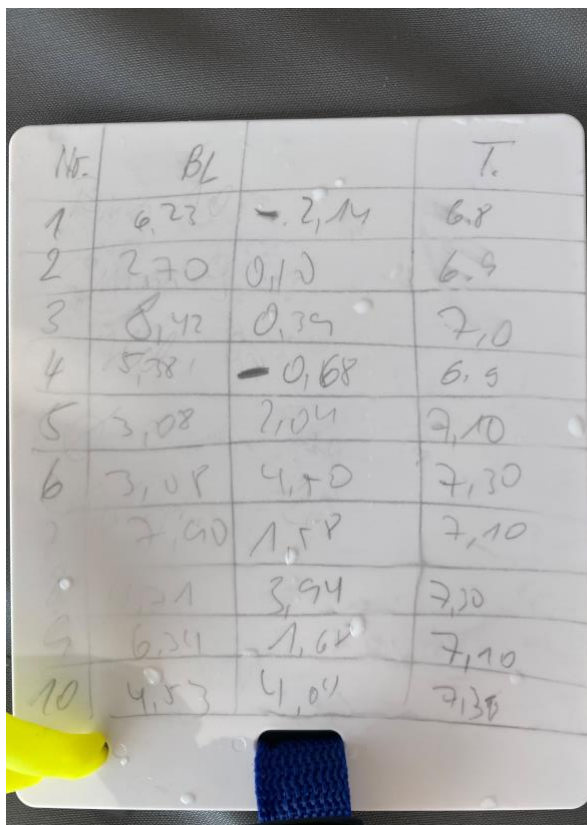 Nr. BL T.
1 6,23 - 2,14 6.8
2 2,70 0,10 6.9
3 8,42 0,39 7,0
4 5,38 - 0,68 6.9
5 3,08 2,04 7,10
6 3,08 4,50 7,30
7,90 1,58 7,10
3,94 7,30
9 6,34 1,68 7,10
10 4,53 4,04 7,30